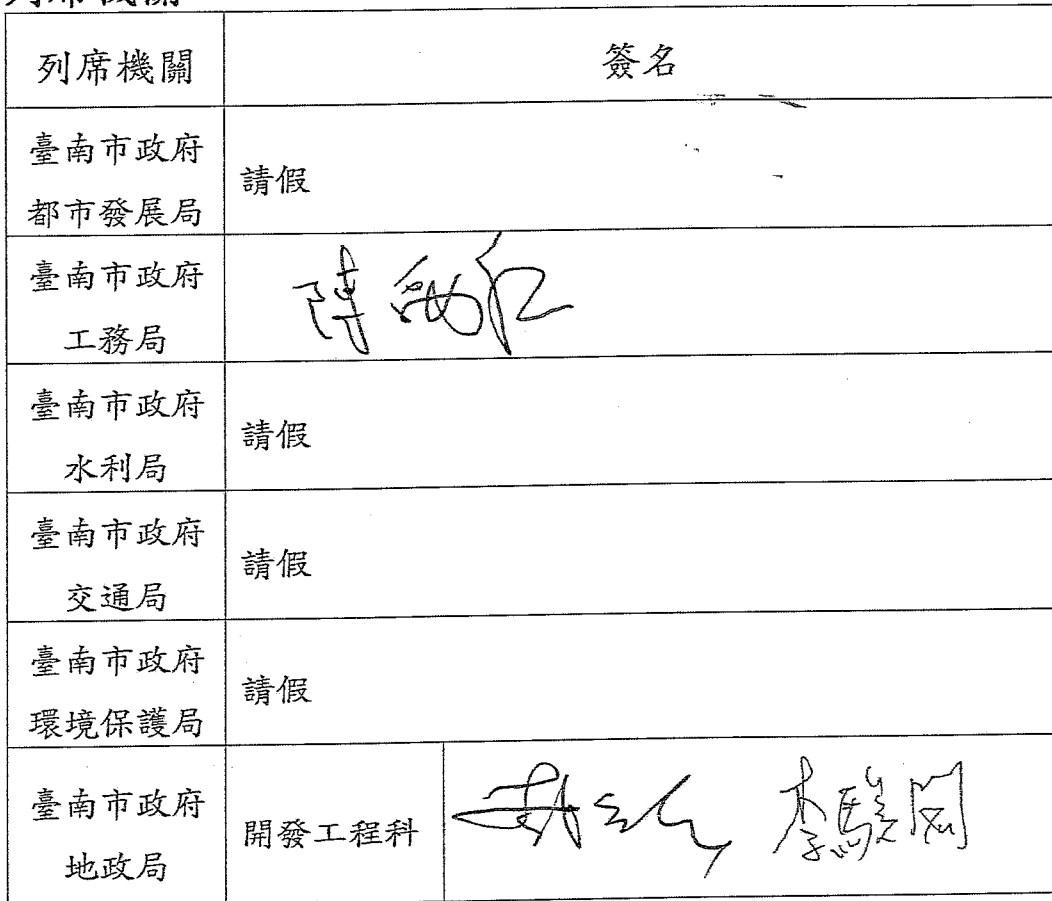 列席機關
列席機關 簽名
臺南市政府
都市發展局
請假
臺南市政府
工務局
陳
臺南市政府
水利局
請假
臺南市政府
交通局
請假
臺南市政府
環境保護局
請假
臺南市政府
地政局
開發工程科
李駿